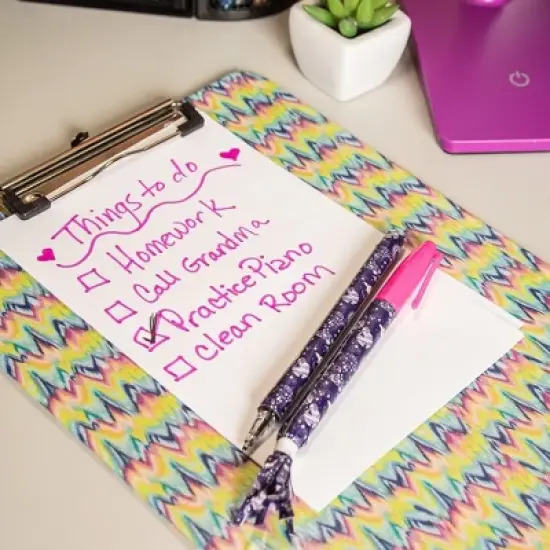 Things to do
Homework
Call Grandma
Practice Piano
Clean Room